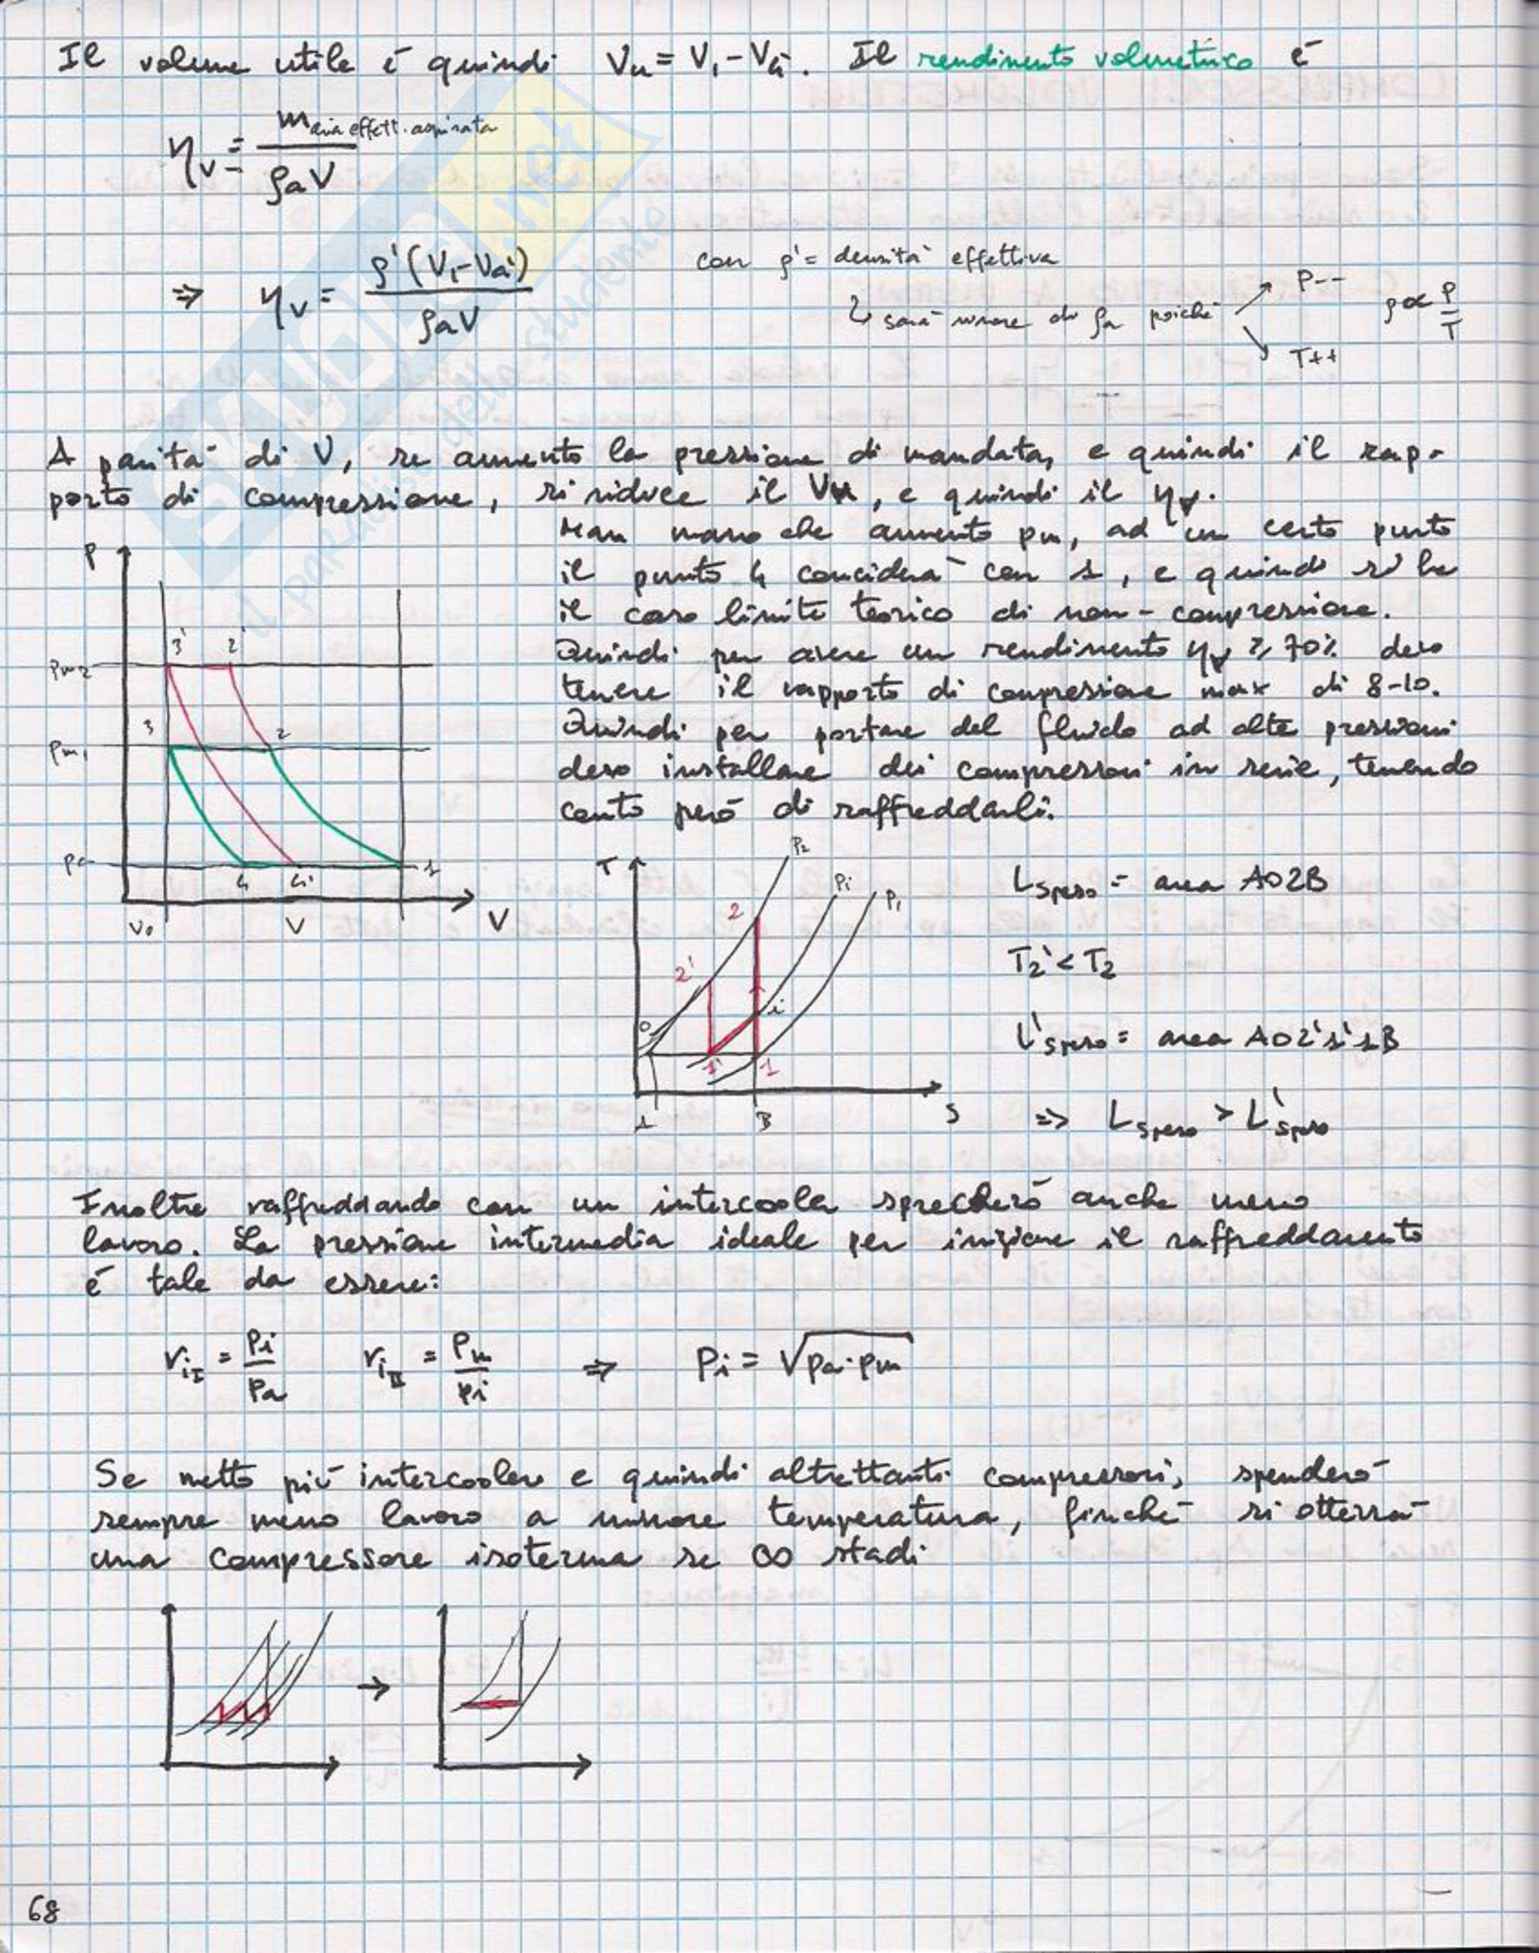 Il volume utile è quindi Vu = V1 - V4. Il rendimento volumetrico è
ηv = m aria effett. aspirata / ρa V
⇒ ηv = ρ'(V1 - V4) / ρa V
con ρ' = densità effettiva
↳ sarà minore di ρa poiché
P--
T++
ρ ∝ P/T
SKUOLA.net
il paradiso dello studente
A parità di V, se aumento la pressione di mandata, e quindi il rap-
porto di compressione, si riduce il Vu, e quindi il ηv.
Man mano che aumento pm, ad un certo punto
il punto 4 conciderà con 1, e quindi si ha
il caso limite teorico di non-compressione.
Quindi per avere un rendimento ηv ≥ 70% devo
tenere il rapporto di compressione max di 8-10.
Quindi per portare del fluido ad alte pressioni
devo installare dei compressori in serie, tenendo
conto però di raffreddarli.
P
3' 2'
pm2
3 2
pm1
pa
4 4' 1
V0 V V
T
P2
Pi
P1
2
2'
0
i
1' 1
A B S
Lspeso = area A02B
T2' < T2
L'speso = area A02'1'1B
⇒ Lspeso > L'speso
Inoltre raffreddando con un intercooler sprecherò anche meno
lavoro. La pressione intermedia ideale per iniziare il raffreddamento
è tale da essere:
riI = pi/pa riII = pm/pi ⇒ pi = √pa·pm
Se metto più intercooler e quindi altrettanti compressori, spenderò
sempre meno lavoro a minore temperatura, finché si otterrà
una compressore isoterma se ∞ stadi
→
68